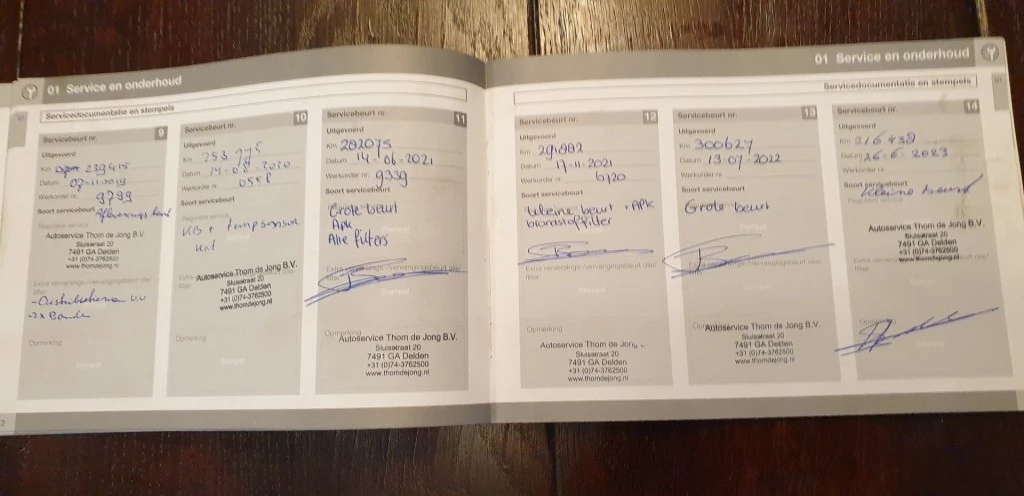 01 Service en onderhoud
Servicedocumentatie en stempels
Servicebeurt nr. 9
Uitgevoerd
Km 239415
Datum 07-11-2019
Werkorder nr. 9799
Soort servicebeurt
Reguliere service
Autoservice Thom de Jong B.V.
Sluisstraat 20
7491 GA Delden
+31 (0)74-3762500
www.thomdejong.nl
Extra verversings-/vervangingsbeurt olie/
filter
- Distributieriem v.v
- 2x Banden
Opmerking
Servicebeurt nr. 10
Uitgevoerd
Km 253975
Datum 14-08-2020
Werkorder nr. 0558
Soort servicebeurt
Reguliere service
KB + tempsensor
Extra verversings-/vervangingsbeurt olie/
filter
Autoservice Thom de Jong B.V.
Sluisstraat 20
7491 GA Delden
+31 (0)74-3762500
www.thomdejong.nl
Opmerking
Servicebeurt nr. 11
Uitgevoerd
Km 282075
Datum 14-06-2021
Werkorder nr. 9339
Soort servicebeurt
Grote beurt
Apk
Alle filters
Extra verversings-/vervangingsbeurt olie/
filter
Stempel
Opmerking
Autoservice Thom de Jong B.V.
Sluisstraat 20
7491 GA Delden
+31 (0)74-3762500
www.thomdejong.nl
01 Service en onderhoud
Servicedocumentatie en stempels
Servicebeurt nr. 12
Uitgevoerd
Km 291992
Datum 17-11-2021
Werkorder nr. 6120
Soort servicebeurt
kleine beurt + APK
brandstoffilter
Extra verversings-/vervangingsbeurt olie/
filter
Stempel
Opmerking
Autoservice Thom de Jong
Sluisstraat 20
7491 GA Delden
+31 (0)74-3762500
www.thomdejong.nl
Servicebeurt nr. 13
Uitgevoerd
Km 300627
Datum 13-07-2022
Werkorder nr.
Soort servicebeurt
Grote beurt
Extra verversings-/vervangingsbeurt olie/
filter
Stempel
Opmerking
Autoservice Thom de Jong B.V.
Sluisstraat 20
7491 GA Delden
+31 (0)74-3762500
www.thomdejong.nl
Servicebeurt nr. 14
Uitgevoerd
Km 316438
Datum 26-6-2023
Werkorder nr.
Soort servicebeurt
Kleine beurt
Autoservice Thom de Jong B.V.
Sluisstraat 20
7491 GA Delden
+31 (0)74-3762500
www.thomdejong.nl
Extra verversings-/vervangingsbeurt olie/
filter
Stempel
Opmerking